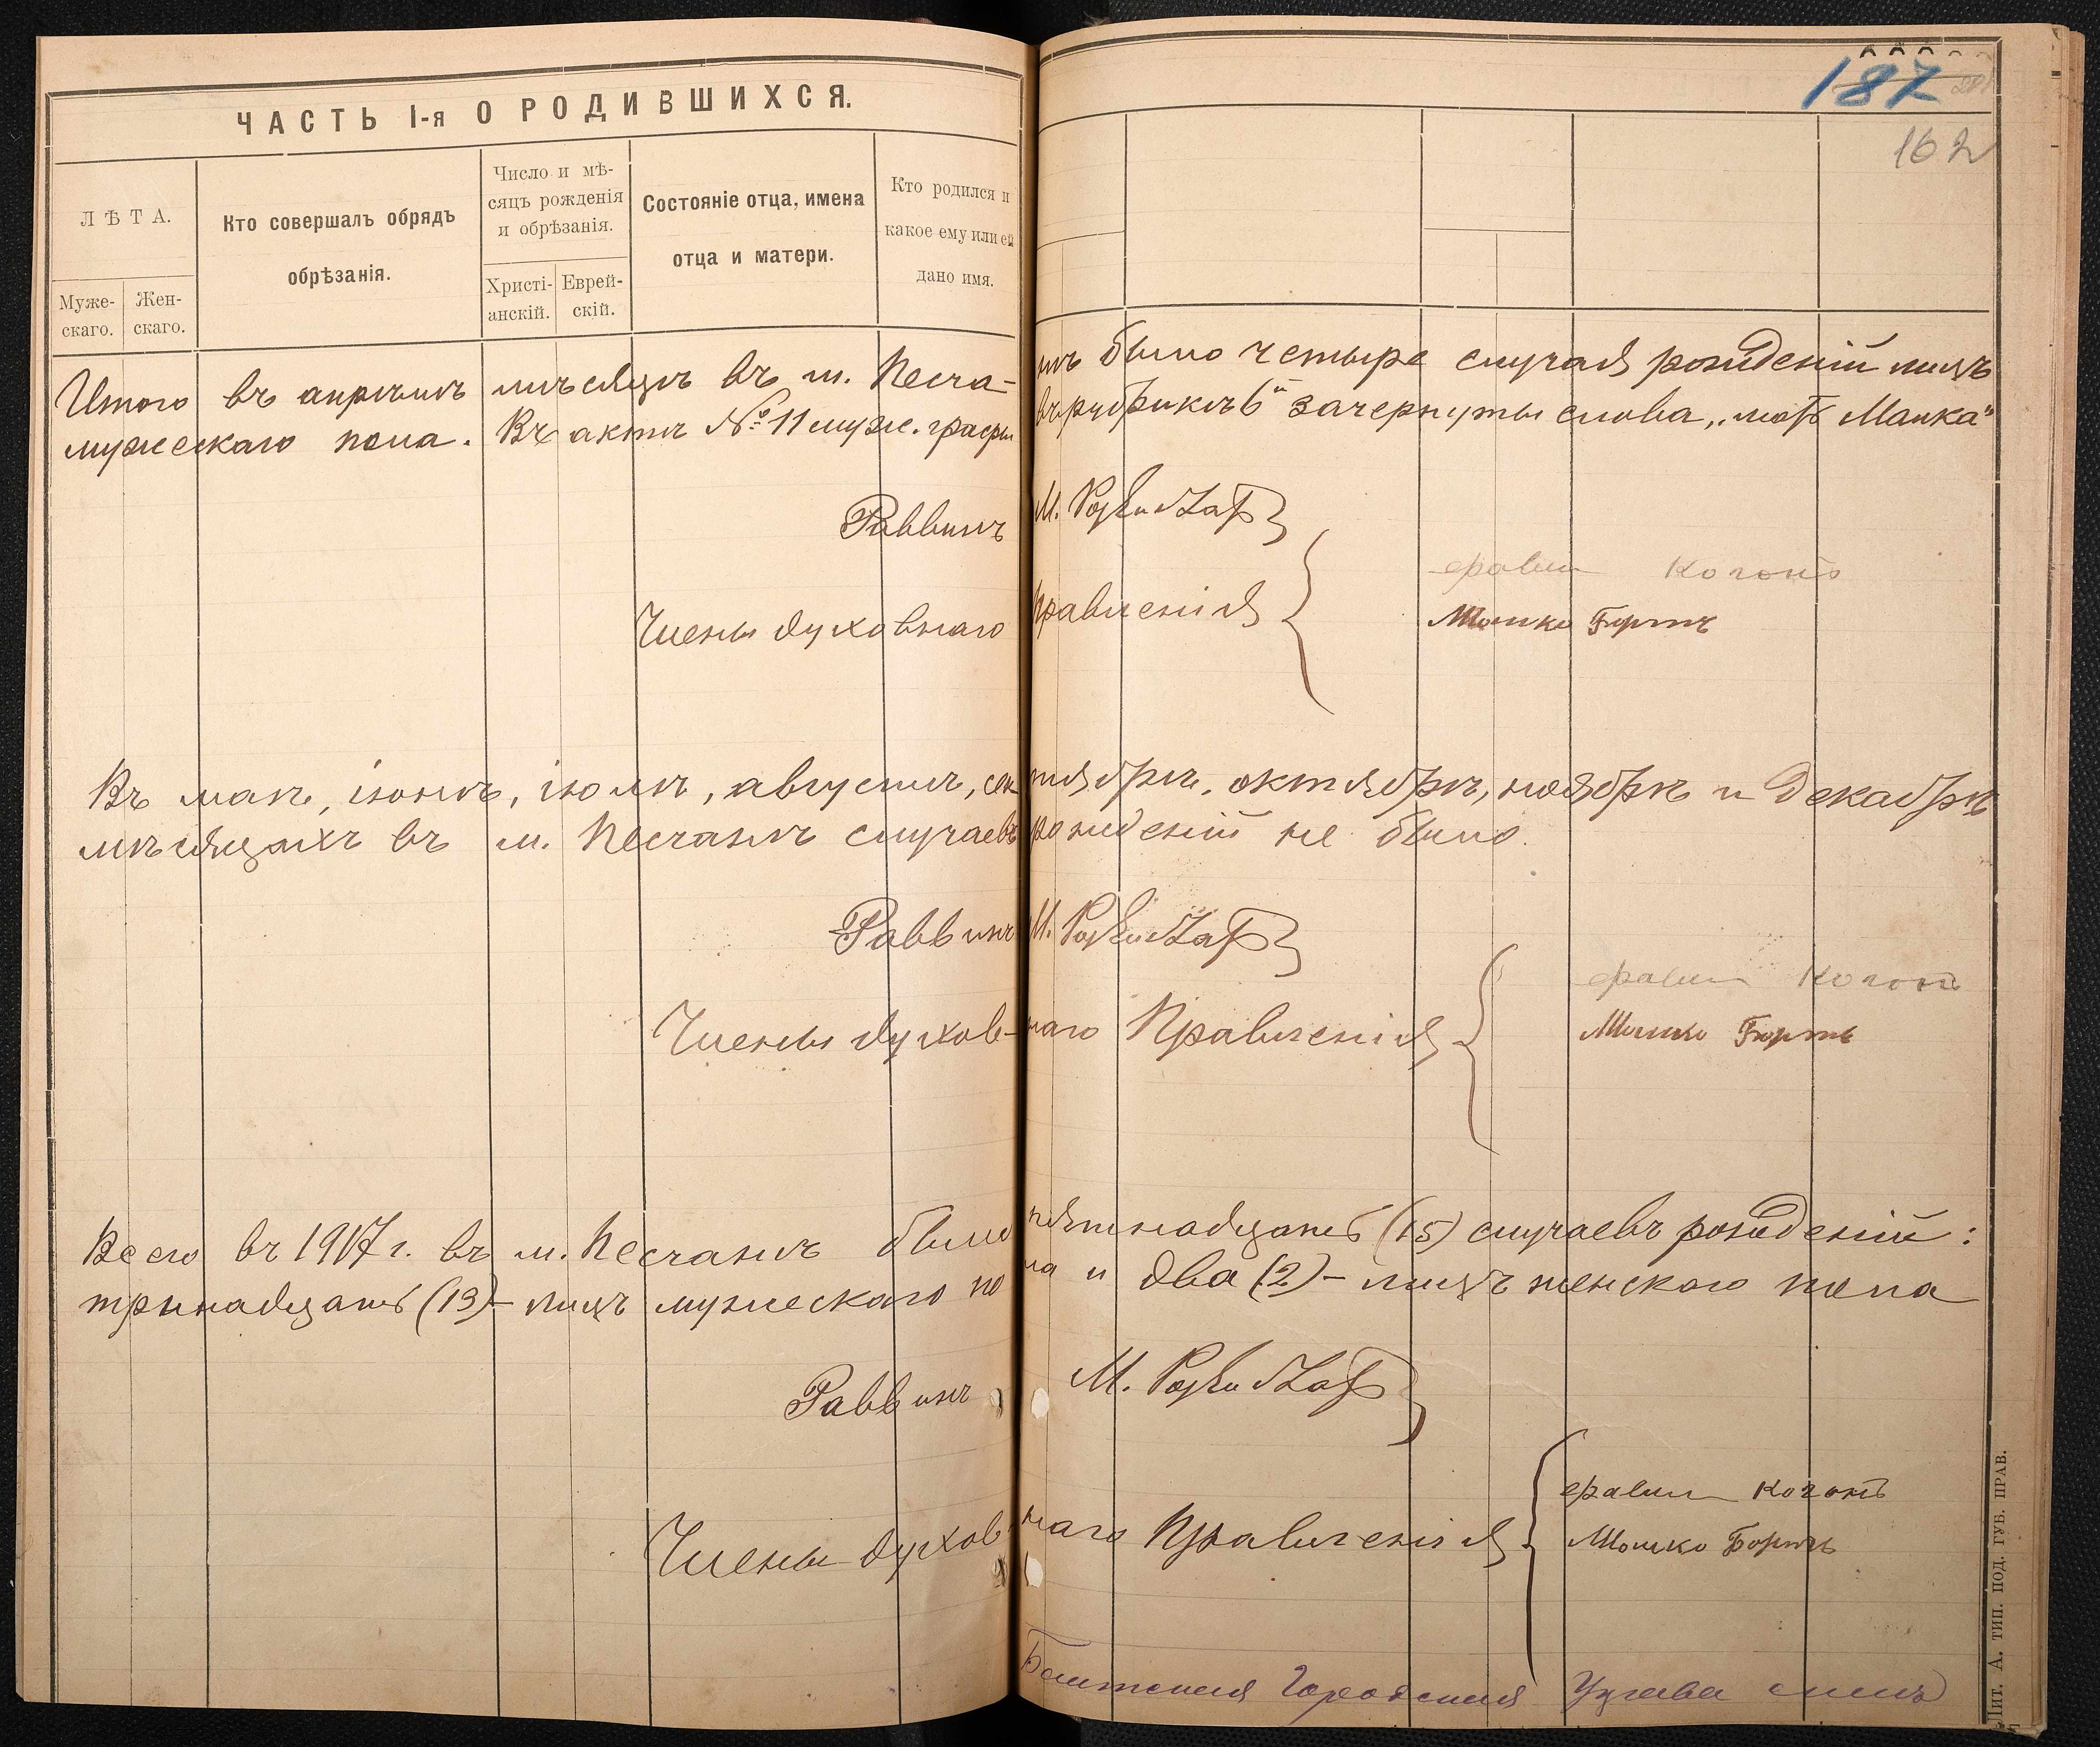 187
162
ЧАСТЬ I-я О РОДИВШИХСЯ.
ЛѢТА.
Муже-
скаго.
Жен-
скаго.
Кто совершалъ обрядъ
обрѣзанія.
Число и мѣ-
сяцъ рожденія
и обрѣзанія.
Христі-
анскій.
Еврей-
скій.
Состояніе отца, имена
отца и матери.
Кто родился и
какое ему или ей
дано имя.
Итого въ апрѣлѣ мѣсяцѣ въ м. Песча-нѣ было четыре случая рожденій лицъ
мужескаго пола. Въ актѣ №11 муж. графы въ рубрикѣ 6й зачеркнуты слова „мать Малка"
Раввинъ М.
Члены духовнаго Правленія
Когонъ
Мошко
Въ маѣ, іюнѣ, іюлѣ, августѣ, сентябрѣ, октябрѣ, ноябрѣ и декабрѣ
мѣсяцахъ въ м. Песчанѣ случаевъ рожденій не было.
Раввинъ М.
Члены духов-наго Правленія
Когонъ
Мошко
Всего въ 1917 г. въ м. Песчанѣ было пятнадцать (15) случаевъ рожденій:
тринадцать (13) – лицъ мужескаго пола и два (2) – лицъ женскаго пола
Раввинъ М.
Члены духовнаго Правленія
Когонъ
Мошко
Балтская Городская Управа
Лит. А. ТИП. ПОД. ГУБ. ПРАВ.